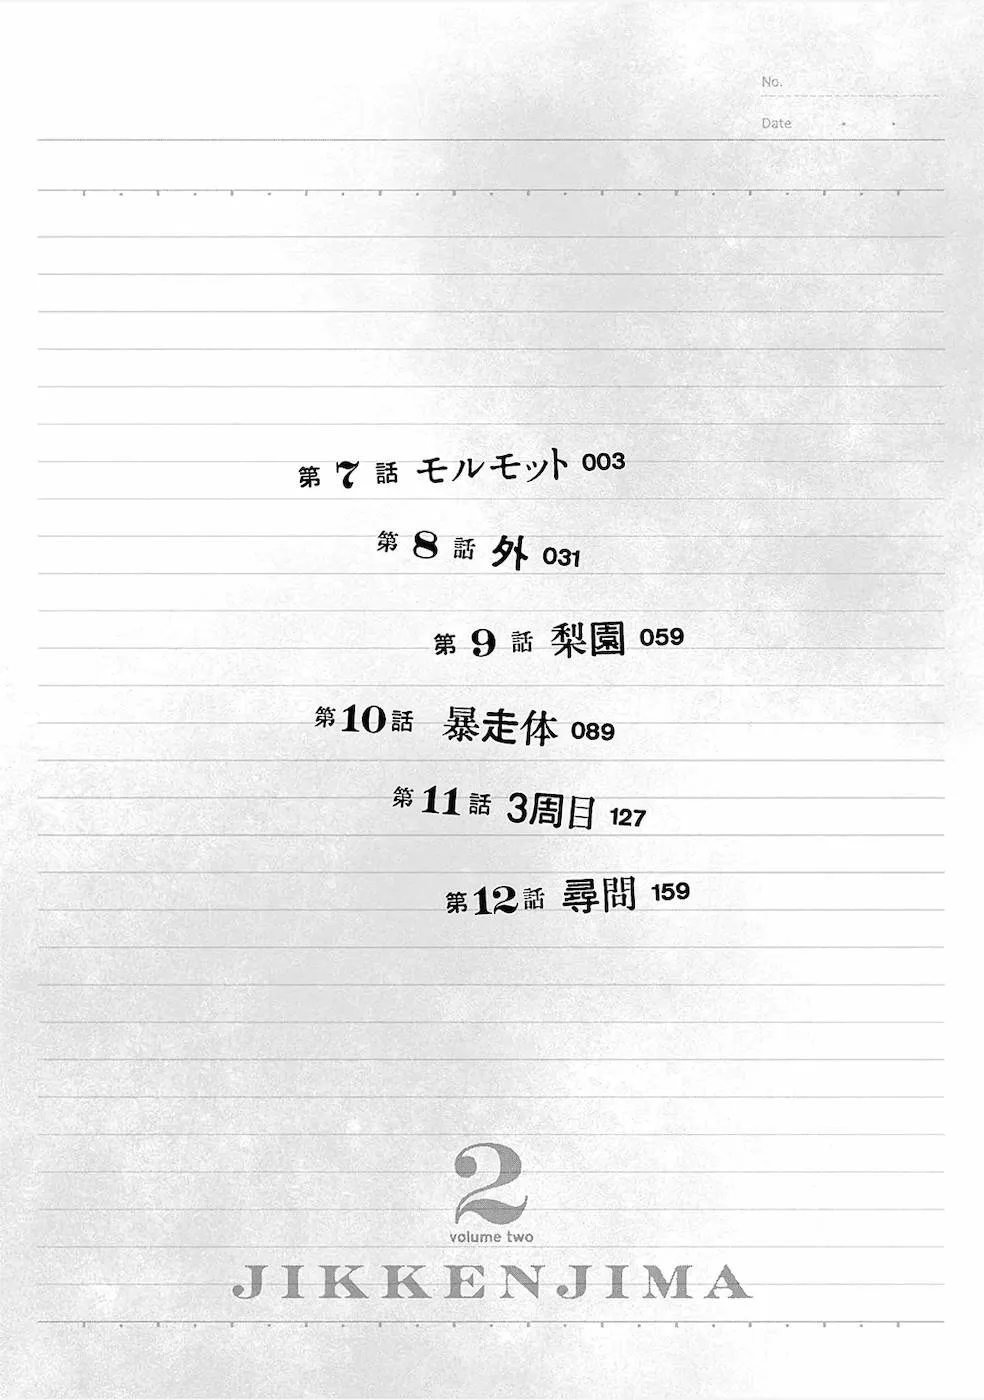 No.
Date
第7話 モルモット 003
第8話 外 031
第9話 梨園 059
第10話 暴走体 089
第11話 3周目 127
第12話 尋問 159
2
volume two
JIKKENJIMA